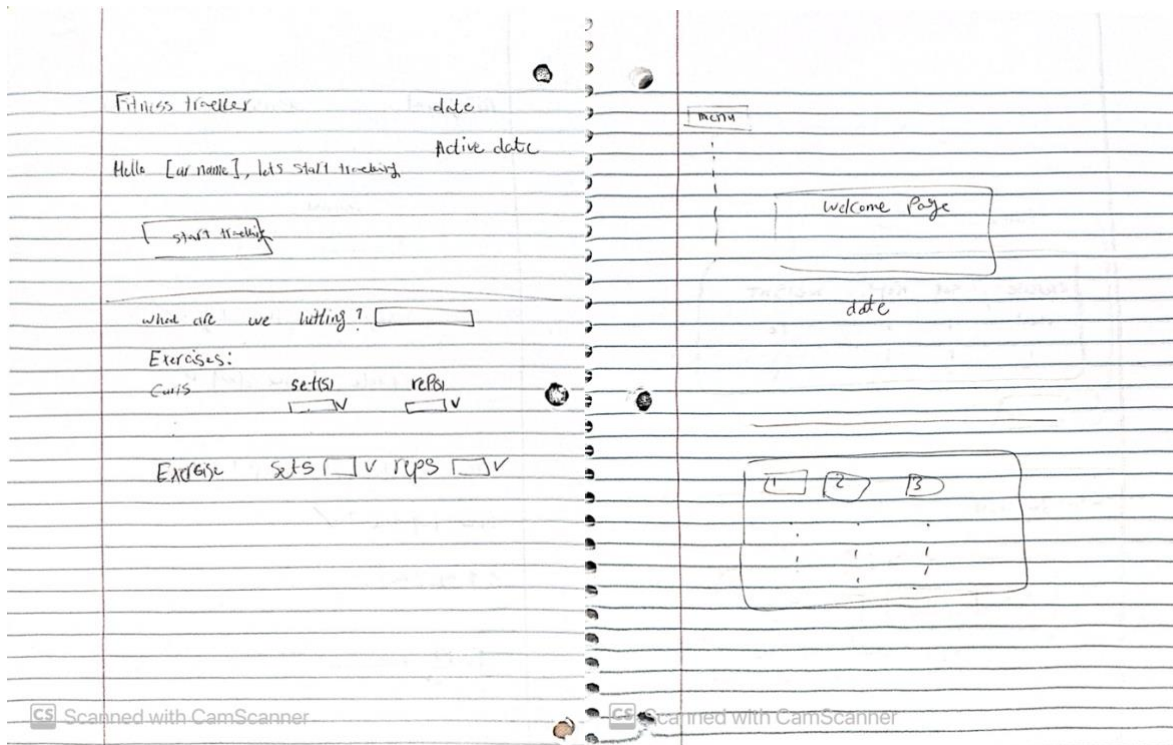 Fitness tracker date
Active date
Hello [ur name], lets start tracking
start tracking
what are we hitting?
Exercises:
Curls set(s) reps
Exercise sets reps
CS Scanned with CamScanner
menu
Welcome Page
date
1 2 3
CS Scanned with CamScanner